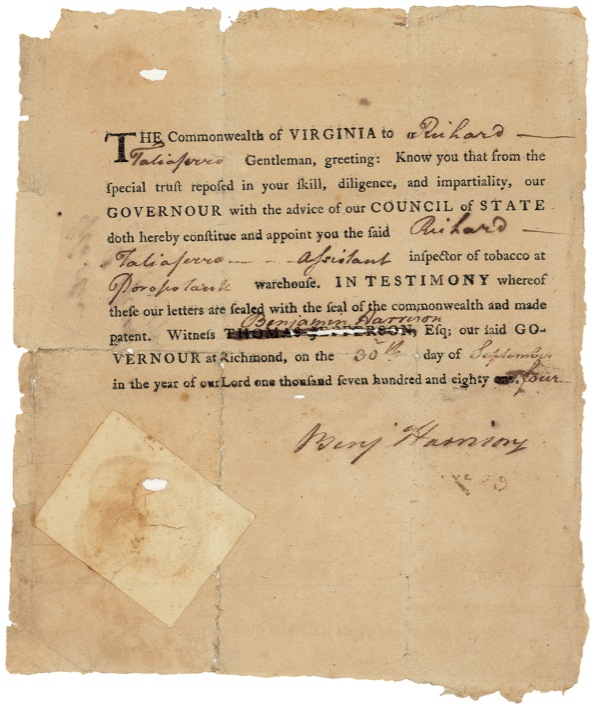 THE Commonwealth of VIRGINIA to Richard
Taliaferro Gentleman, greeting: Know you that from the
ſpecial truſt repoſed in your ſkill, diligence, and impartiality, our
GOVERNOUR with the advice of our COUNCIL of STATE
doth hereby conſtitue and appoint you the ſaid Richard
Taliaferro Aſsistant inſpector of tobacco at
Poropotank warehouse. IN TESTIMONY whereof
theſe our letters are ſealed with the ſeal of the commonwealth and made
Benjamin Harrison
patent. Witneſs THOMAS JEFFERSON, Eſq; our ſaid GO-
VERNOUR at Richmond, on the 30th day of September
in the year of our Lord one thouſand ſeven hundred and eighty one. four
Benj Harrison